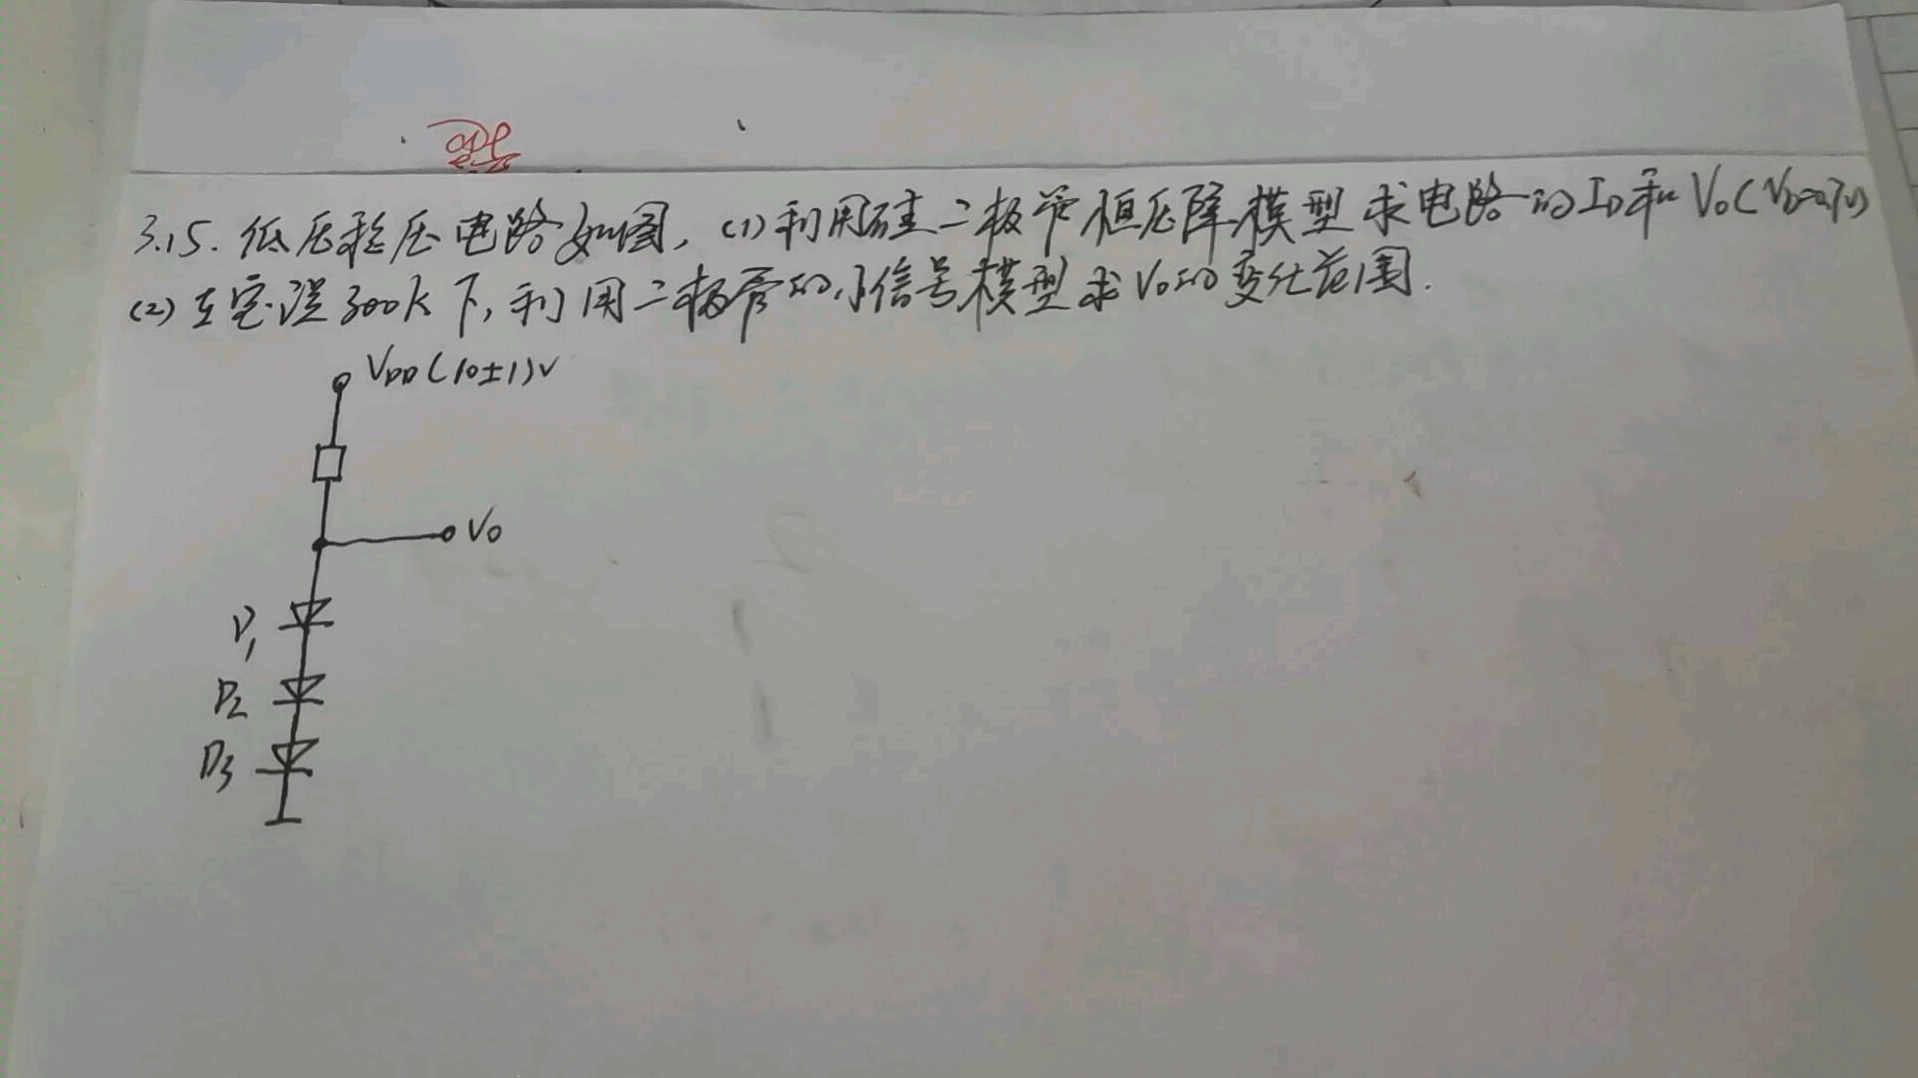 3.15. 低压稳压电路如图, (1) 利用硅二极管恒压降模型求电路的 ID 和 Vo (VD=0.7V)
(2) 在室温300K下, 利用二极管的小信号模型求Vo的变化范围.
VDD (10±1)V
Vo
D1
D2
D3